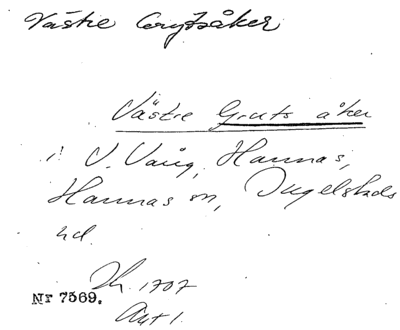 Västre Grytsåker
Västre Gruts åker
i V. Vång, Hannas,
Hannas sn, Ingelstads
hd.
1707
Nr 7569.
Akt 1.